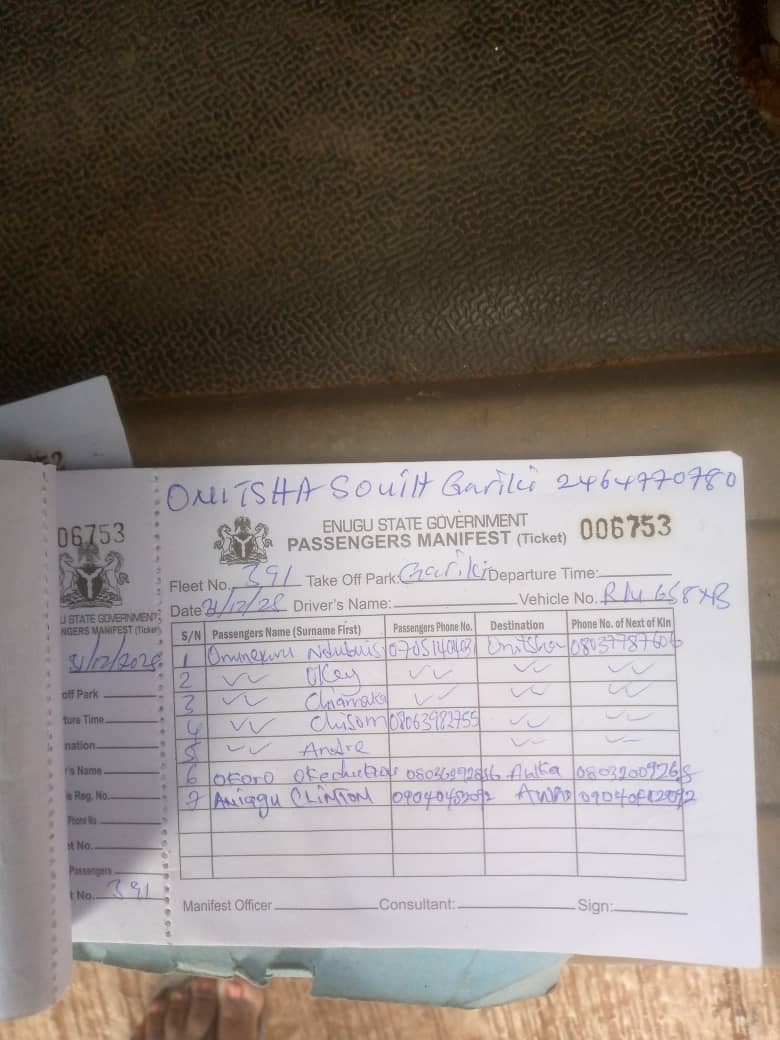 ONITSHA SOUTH Gariki 2464770780
ENUGU STATE GOVERNMENT
PASSENGERS MANIFEST (Ticket) 006753
Fleet No. 391 Take Off Park: Gariki Departure Time:
Date 31/12/25 Driver's Name: Vehicle No.
S/N Passengers Name (Surname First) Passengers Phone No. Destination Phone No. of Next of Kin
1 Ndubuisi Onitsha
2 Okey
3 Chiamaka
4 Chisom 08063982755
5 Andre
6 Okoro Awka
7 Aniagu CLINTON Awka
Manifest Officer Consultant: Sign:
06753
U STATE GOVERNMENT
NGERS MANIFEST (Ticket)
off Park
ture Time
nation
r's Name
e Reg. No.
Phone No
t No.
Passengers
t No. 391